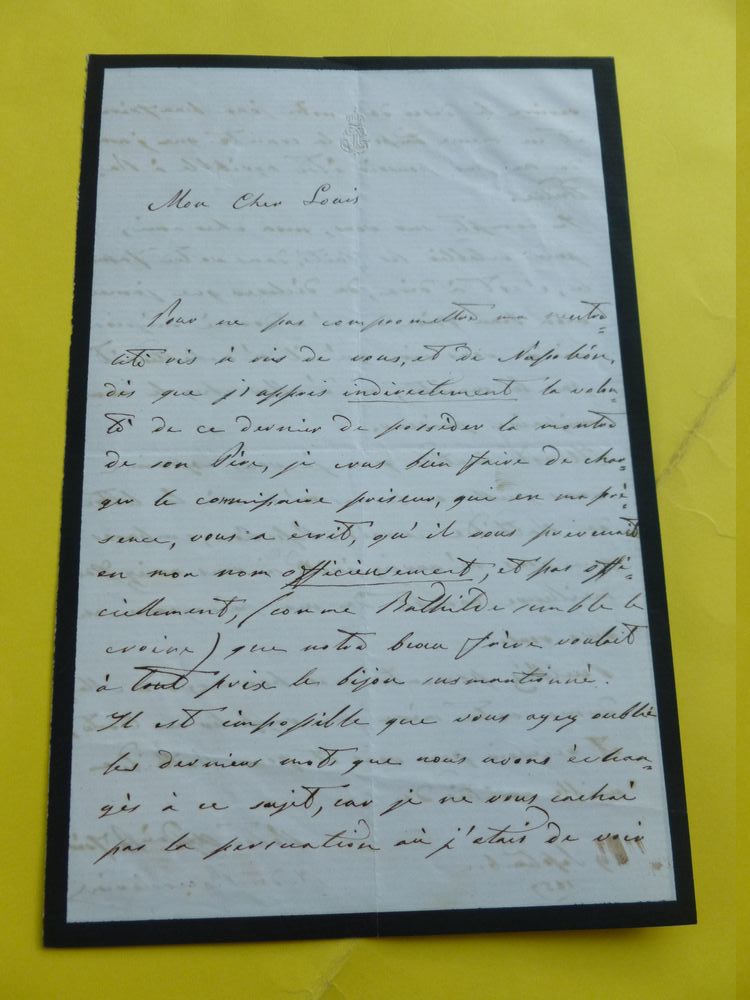 Mon Cher Louis
Pour ne pas compromettre ma neutra=
lité vis à vis de vous, et de Napoléon,
dès que j'appris indirectement la volon=
té de ce dernier de possèder la montre
de son Père, je crus bien faire de char=
ger le commissaire priseur, qui en ma pré=
sence, vous a écrit, qu'il vous prévenait
en mon nom officieusement, et pas offi=
ciellement, (comme Bathilde semble le
croire) que notre beau frère voulait
à tout prix le bijou susmentionné.
Il est impossible que vous ayez oublié
les derniers mots que nous avons échan=
gés à ce sujet, car je ne vous cachai
pas la persuation où j'étais de voir